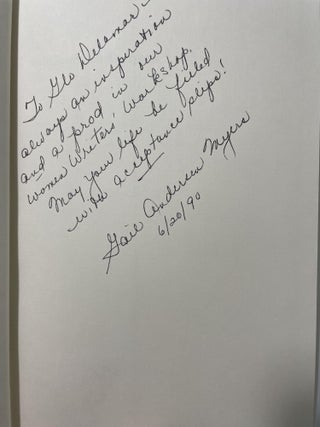 To Glo Delamar –
always an inspiration
and a prod in our
women writers' workshop.
May your life be filled
with acceptance slips!
Gail Andersen Myers
6/20/90